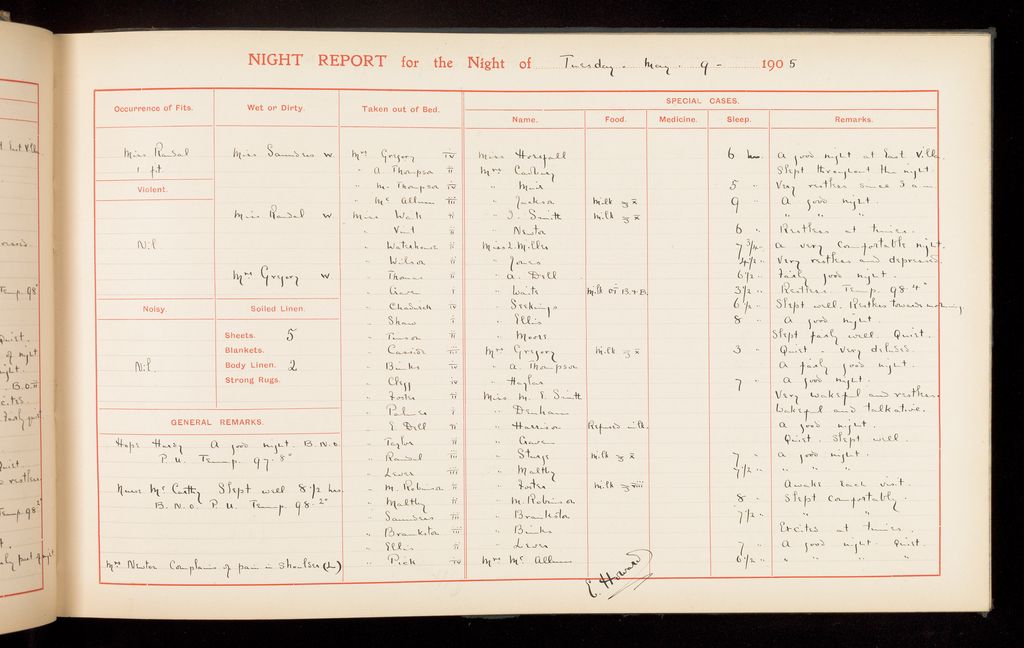 NIGHT REPORT for the Night of Tuesday. May. 9 - 1905
Occurrence of Fits.
Miss Randal
1 fit
Violent.
Nil
Noisy.
Nil.
Wet or Dirty.
Miss Saunders w.
Miss Randal w.
Mrs Gregory w.
Soiled Linen.
Sheets. 5
Blankets.
Body Linen. 2
Strong Rugs.
GENERAL REMARKS.
Hope Hardy A good night. B.N.O.
P.U. Temp. 97.8°
Nurse McCarthy Slept well 8 1/2 hrs
B.N.O. P.U. Temp 98.2°
Mrs Newton Complains of pain in shoulder (L)
Taken out of Bed.
Mrs Gregory iv
" A. Thompson ii
" M. Thompson iv
" Mc Allum iii
Miss Wait ii
" Vint ii
" Waterhouse ii
" Wilson ii
" Thomas ii
" i
" Chadwick iv
" Shaw i
" ii
" iii
" Binks iv
" Clegg iv
" Foster ii
" Palmer i
" E. Dell ii
" Taylor ii
" Randal iii
" Lewer iii
" M. Robinson ii
" Maltby ii
" Saunders iii
" Brankston iii
" Ellis ii
" Pick iv
SPECIAL CASES.
Name. Food. Medicine. Sleep. Remarks.
Miss Horsfall 6 hrs. A good night at East Villa.
Mrs Cadbury Slept throughout the night.
" Muir 5 " Very restless since 3 a.m.
" Jackson Milk ℥ x 9 " A good night.
" J. Smith Milk ℥ x " " "
" Newton 6 " Restless at times.
Miss L. Miller 7 3/4 " A very comfortable night.
" Jones 4 1/2 " Very restless and depressed.
" A. Dell 6 1/2 " Fairly good night.
" Waite Milk B.&B. 3 1/2 " Restless. Temp. 98.4°
" Seekings 6 1/2 " Slept well. Restless towards morning
" Ellis 8 " A good night.
" Moors Slept fairly well. Quiet.
Mrs Gregory Milk ℥ x 3 " Quiet. Very deluded.
" A. Thompson A fairly good night.
" Haylar 7 " A good night.
Miss M. E. Smith Very wakeful and restless.
" Denham Wakeful and talkative.
" Harrison Refused milk. A good night.
" Quiet. Slept well.
" Sturge Milk ℥ x 7 " A good night.
" Maltby 7 1/2 " " " "
" Foster Milk ℥ xviii Awake each visit.
" M. Robinson 8 " Slept comfortably.
" Brankston 7 1/2 " " "
" Binks Excited at times.
" Lewer 7 " A good night. Quiet.
Mrs Mc Allum 6 1/2 " " " "
E. Howard